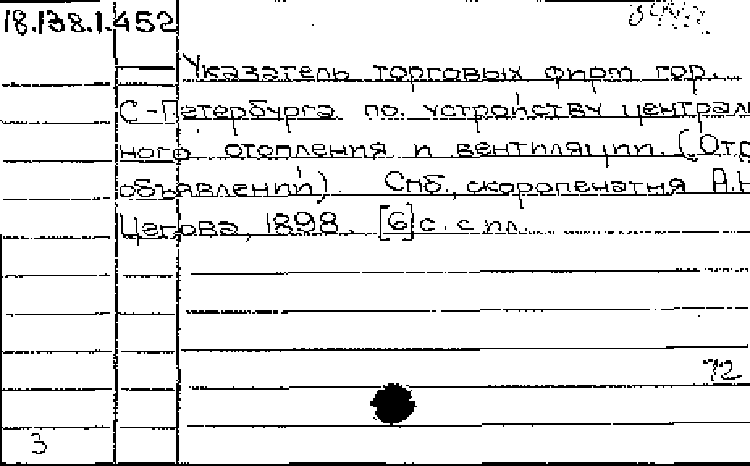 18.138.1.452
Указатель торговых фирм гор.
С-Петербурга по устройству централь
ного отопления и вентиляции. (Отд
объявлений). Спб., скоропечатня
1898. [6] с. с пл.
72
3